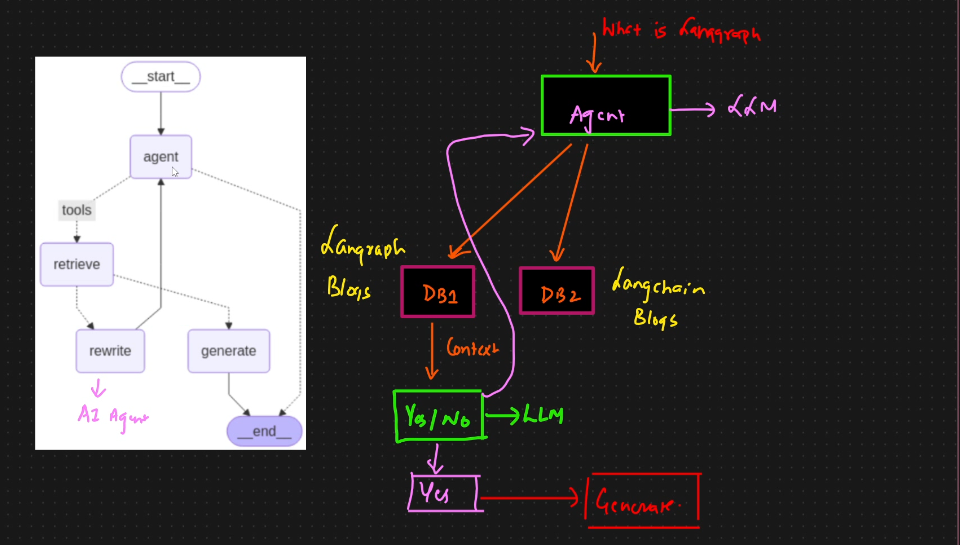 __start__
agent
tools
retrieve
rewrite
generate
__end__
AI Agent
What is Langgraph
Agent
LLM
Langraph
Blogs
DB1
DB2
Langchain
Blogs
Context
Yes/No
LLM
Yes
Generate.